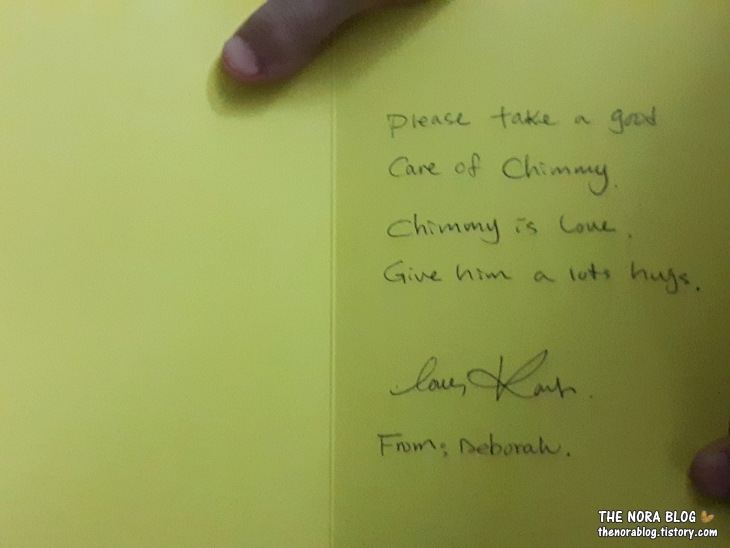 Please take a good
Care of Chimmy.
Chimmy is love.
Give him a lots hugs.
From; Deborah.
THE NORA BLOG
thenorablog.tistory.com